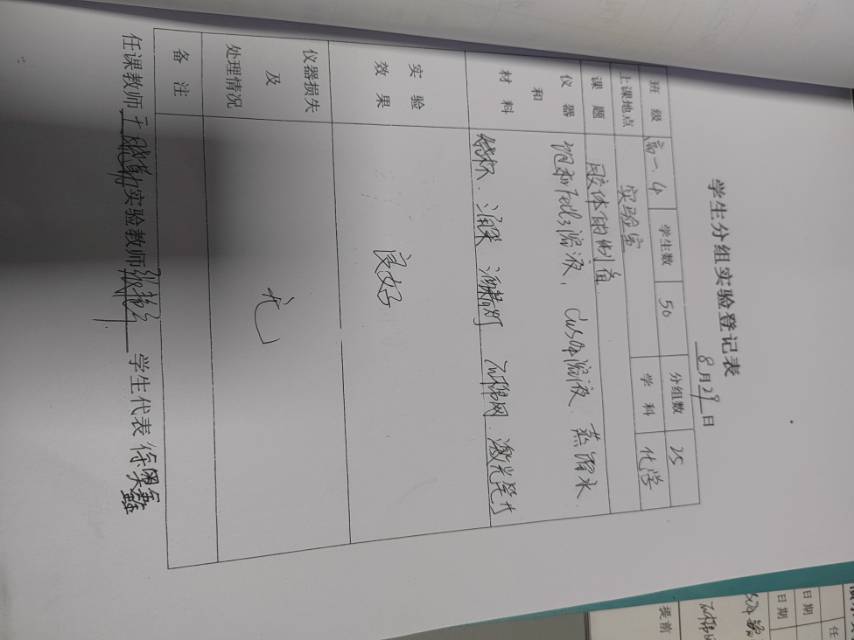 学生分组实验登记表
8月29日
班级 高一.4 学生数 50 分组数 25
上课地点 实验室 学科 化学
课题 胶体的制备
仪器和材料 饱和FeCl3溶液, CuSO4溶液、蒸馏水.
烧杯、酒精灯 石棉网、激光笔
实验效果 良好
仪器损失及处理情况 无
备注
任课教师 实验教师 学生代表 徐
日期
日期
任
提前